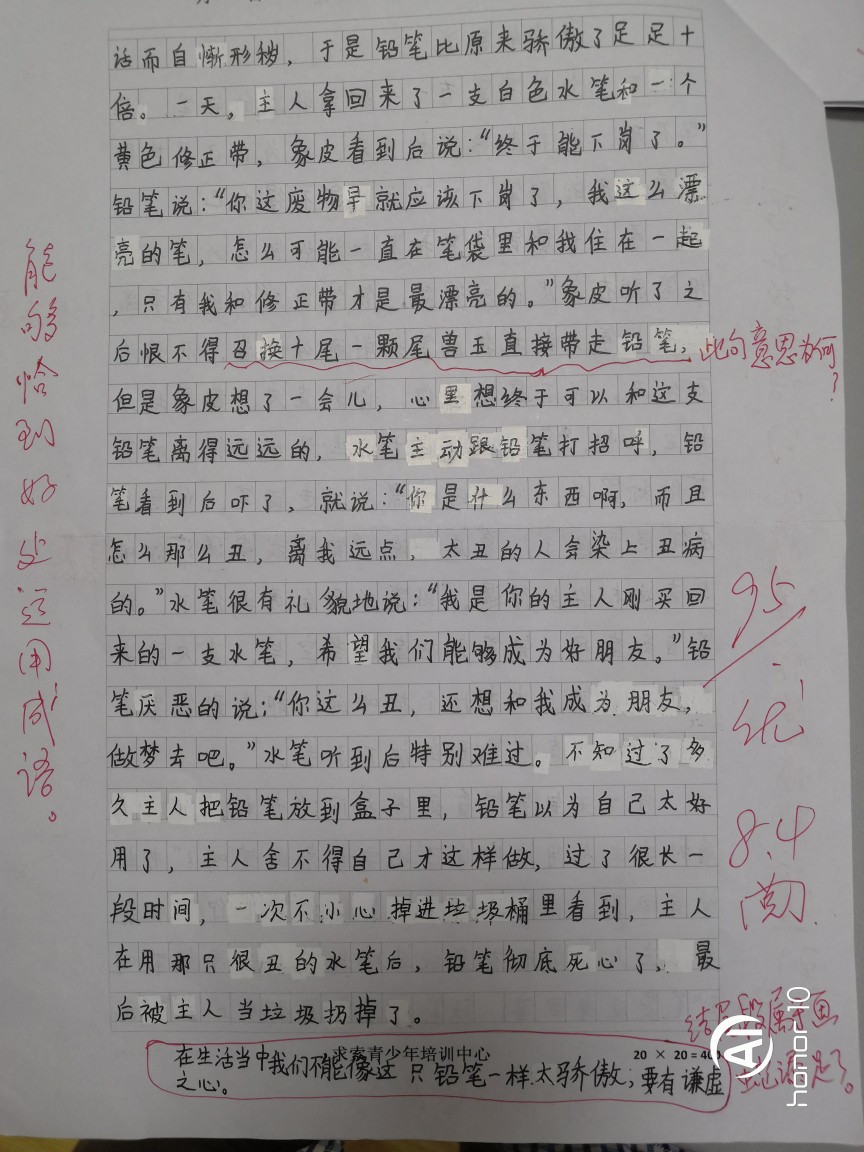 话而自惭形秽，于是铅笔比原来骄傲了足足十
倍。一天，主人拿回来了一支白色水笔和一个
黄色修正带，象皮看到后说：“终于能下岗了。”
铅笔说：“你这废物早就应该下岗了，我这么漂
亮的笔，怎么可能一直在笔袋里和我住在一起
，只有我和修正带才是最漂亮的。”象皮听了之
后恨不得召换十尾一颗尾兽玉直接带走铅笔，
此句意思为何？
但是象皮想了一会儿，心里想终于可以和这支
铅笔离得远远的，水笔主动跟铅笔打招呼，铅
笔看到后吓了，就说：“你是什么东西啊，而且
怎么那么丑，离我远点，太丑的人会染上丑病
的。”水笔很有礼貌地说：“我是你的主人刚买回
来的一支水笔，希望我们能够成为好朋友。”铅
笔厌恶的说：“你这么丑，还想和我成为朋友，
做梦去吧。”水笔听到后特别难过。不知过了多
久主人把铅笔放到盒子里，铅笔以为自己太好
用了，主人舍不得自己才这样做，过了很长一
段时间，一次不小心掉进垃圾桶里看到，主人
在用那只很丑的水笔后，铅笔彻底死心了，最
后被主人当垃圾扔掉了。
求索青少年培训中心
20 × 20 = 400
在生活当中我们不能像这只铅笔一样太骄傲；要有谦虚
之心。
能够恰到好处运用成语。
95
优
8.4
结尾段属于画
蛇添足了。
honor 10
AI